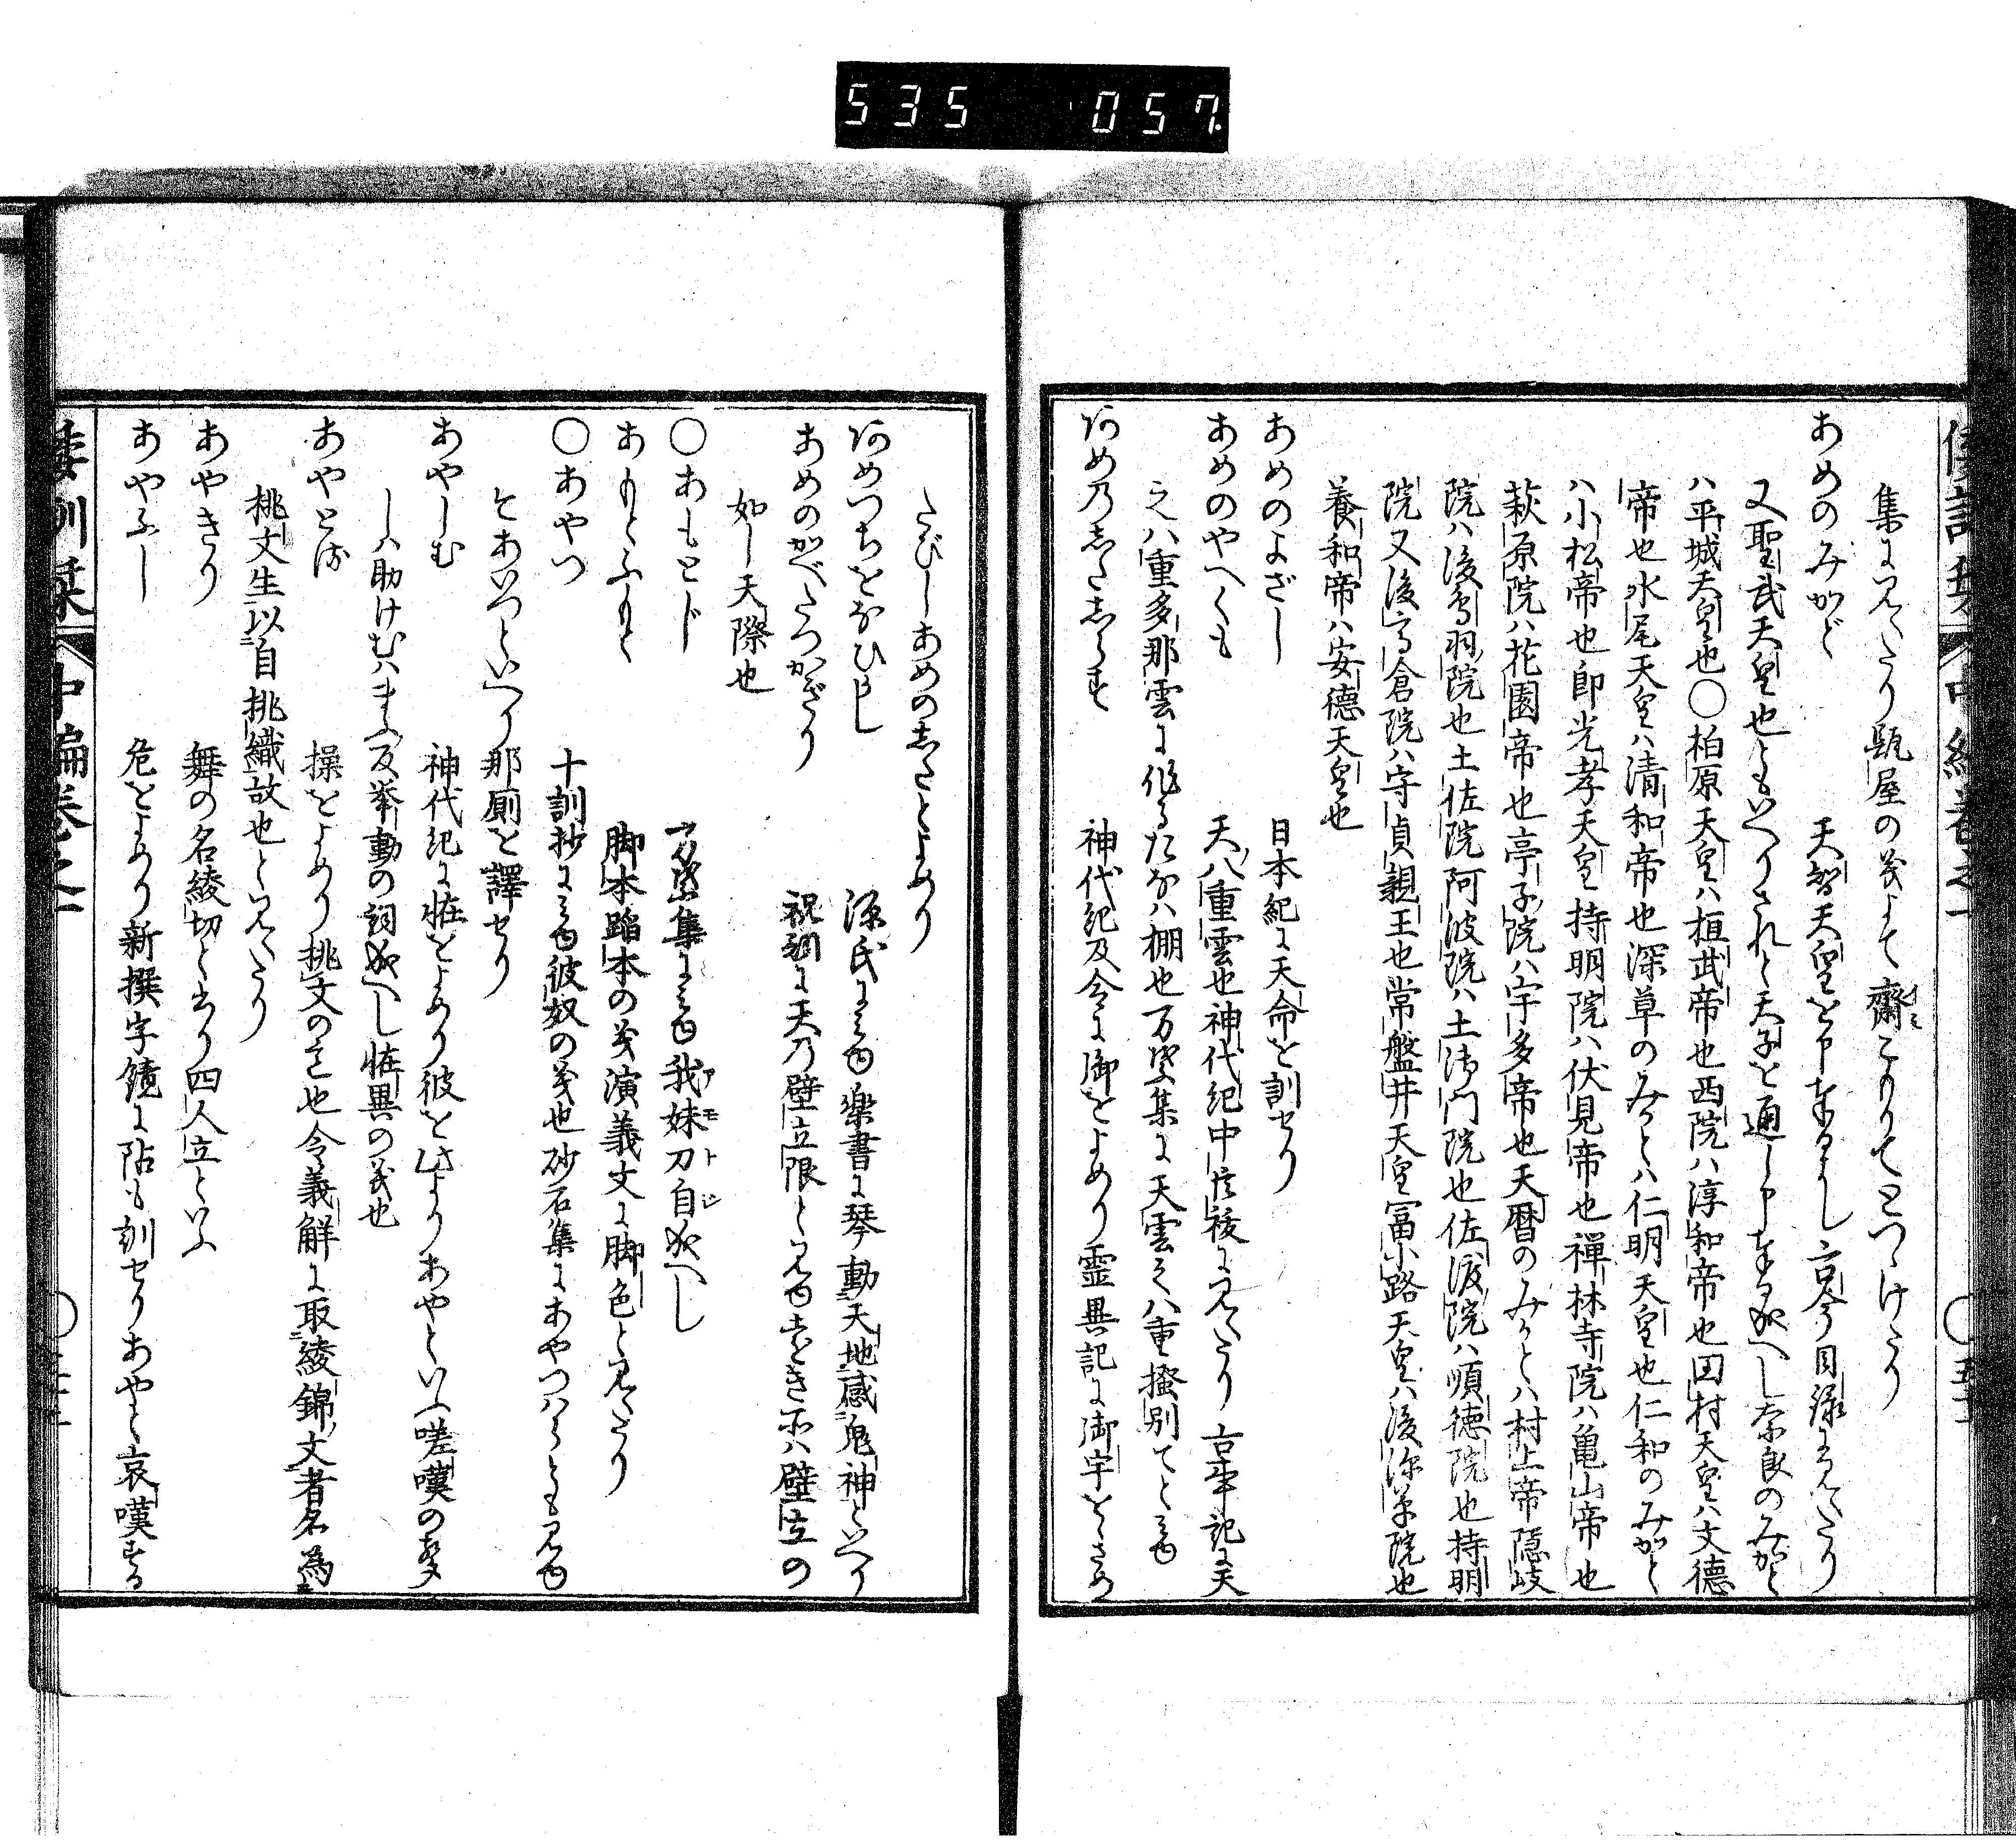 535 057
集に見えたり甅屋の義にて齋こもりてとつゝけたり
あめのみかど 天智天皇を申奉るよし古今目録に見えたり
又聖武天皇也ともいへりされと天子を通し申奉る成へし奈良のみかと
ハ平城天皇也〇柏原天皇ハ桓武帝也西院ハ淳和帝也田村天皇ハ文德
帝也水尾天皇ハ清和帝也深草のみかとハ仁明天皇也仁和のみかと
ハ小松帝也即光孝天皇持明院ハ伏見帝也禪林寺院ハ亀山帝也
萩原院ハ花園帝也亭子院ハ宇多帝也天暦のみかとハ村上帝隠岐
院ハ後鳥羽院也土佐院阿波院ハ土御門院也佐渡院ハ順徳院也持明
院又後高倉院ハ守貞親王也常盤井天皇冨小路天皇ハ後深草院也
養和帝ハ安德天皇也
あめのよざし 日本紀に天命を訓せり
あめのやへくも 天八重雲也神代紀中臣祓に見えたり古事記に天
之八重多那雲に作るたなハ棚也万葉集に天雲之八重掻別てとみゆ
あめ乃志たしらす 神代紀及令に御をよめり霊異記に御宇をゝさめ
たびしあめの志たとよめり
あめつちをなびかし 源氏にみゆ樂書に琴動天地感鬼神といへり
あめのかべたつかぎり 祝詞に天乃壁立限と見ゆ遠き所ハ壁立の
如し天際也
〇あもとじ 万葉集にみゆ我妹刀自成へし アモトシ
あもとふもと 脚本蹈本の義演義文に脚色と見えたり
〇あやつ 十訓抄にみゆ彼奴の義也砂石集にあやつハらとも見ゆ
そあいつといへり那厠を譯せり
あやしむ 神代紀に恠をよめり彼を此よりあやといふ嗟嘆の聲
し八助けむハまふ反挙動の詞成へし恠異の義也
あやとる 操をよめり挑文の意也令義解に取綾錦文者名為
挑文生以自挑織故也と見えたり
あやきり 舞の名綾切と書り四人立といふ
あやふし 危をよめり新撰字鏡に阽も訓せりあやと哀嘆する
倭訓栞 中編巻之一